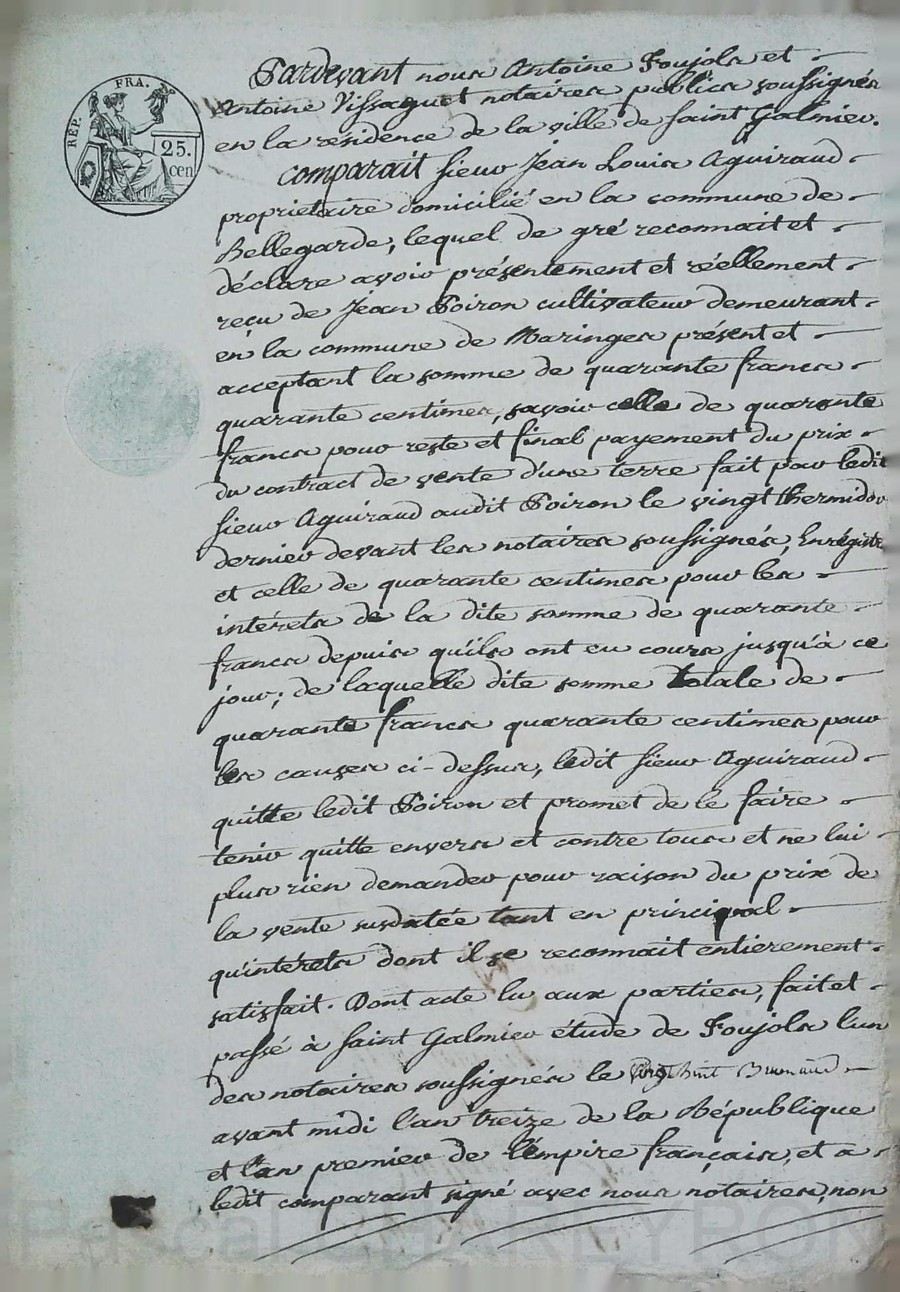 RÉP. FRA.
25.
cen
Pardevant nous Antoine Foujols et
Antoine Vissaguet notaires publics soussignés
en la résidence de la ville de Saint Galmier.
Comparait sieur Jean Louis Aguiraud
propriétaire domicilié en la commune de
Bellegarde, lequel de gré reconnait et
déclare avoir présentement et réellement
reçu de Jean Poiron cultivateur demeurant
en la commune de Maringes présent et
acceptant la somme de quarante francs
quarante centimes, savoir celle de quarante
francs pour reste et final payement du prix
du contract de vente d'une terre fait par ledit
sieur Aguiraud audit Poiron le vingt thermidor
dernier devant les notaires soussignés, Enrégistré
et celle de quarante centimes pour les
intérets de la dite somme de quarante
francs depuis qu'ils ont eu cours jusqu'à ce
jour; de laquelle dite somme totale de
quarante francs quarante centimes pour
les causes ci-dessus, ledit sieur Aguiraud
quitte ledit Poiron et promet de le faire
tenir quitte envers et contre tous et ne lui
plus rien demander pour raison du prix de
la vente susdatée tant en principal
qu'intérets dont il se reconnait entierement
satisfait. Dont acte lu aux parties, fait et
passé à Saint Galmier étude de Foujols l'un
des notaires soussignés le vingt huit Brumaire
avant midi l'an treize de la République
et l'an premier de l'Empire français, et a
ledit comparant signé avec nous notaires, non
Pascal CHAREYRON